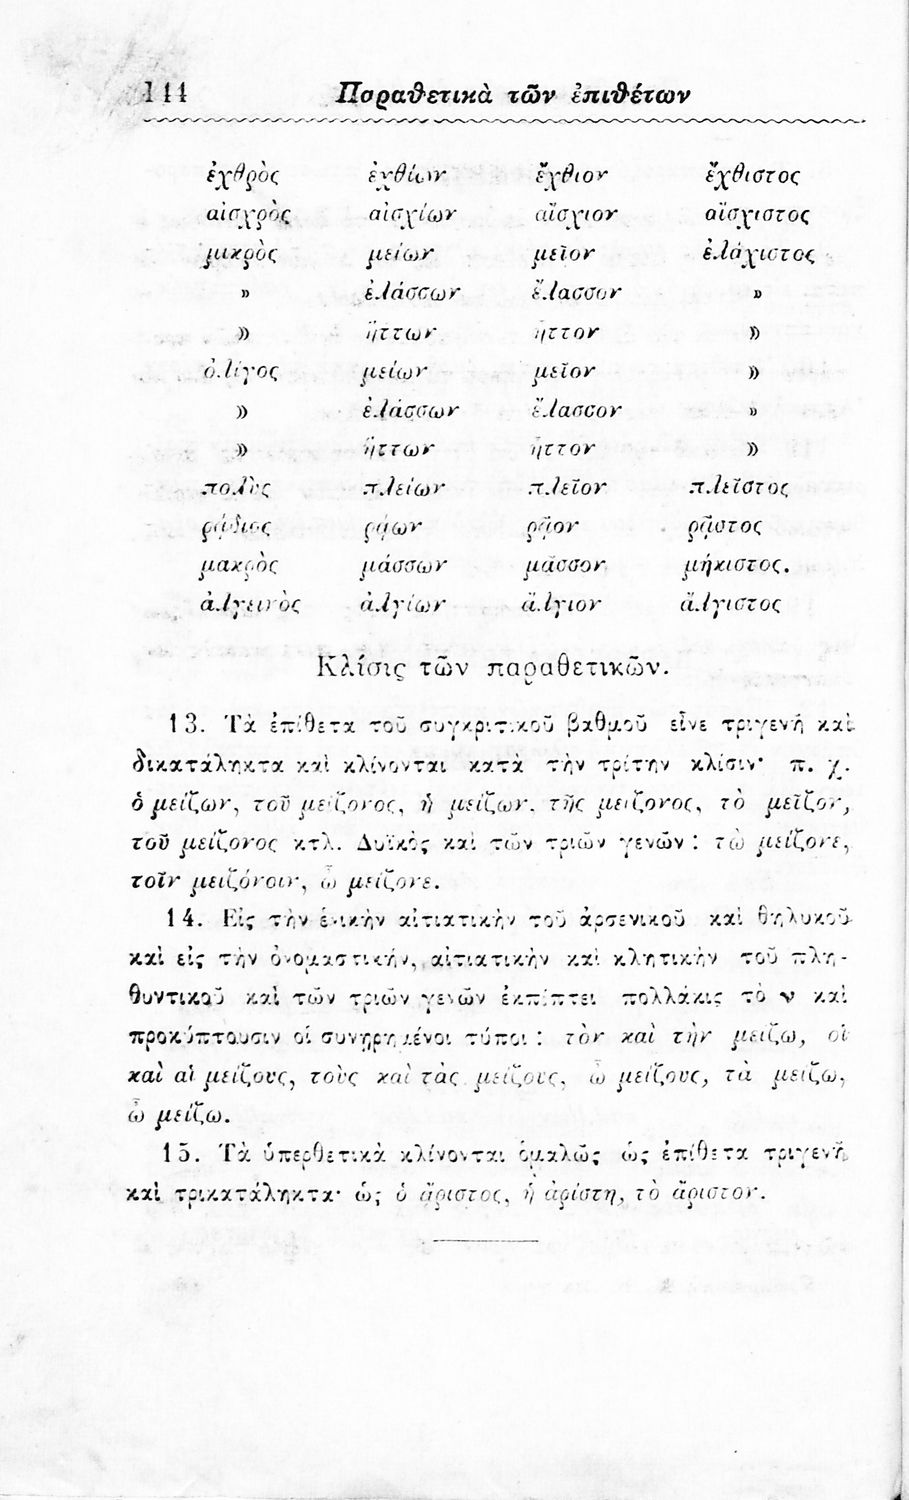 144 Παραθετικὰ τῶν ἐπιθέτων
ἐχθρὸς ἐχθίων ἔχθιον ἔχθιστος
αἰσχρὸς αἰσχίων αἴσχιον αἴσχιστος
μικρὸς μείων μεῖον ἐλάχιστος
» ἐλάσσων ἔλασσον »
» ἥττων ἧττον »
ὀλίγος μείων μεῖον »
» ἐλάσσων ἔλασσον »
» ἥττων ἧττον »
πολὺς πλείων πλεῖον πλεῖστος
ρᾴδιος ρᾴων ρᾷον ρᾷστος
μακρὸς μάσσων μᾶσσον μήκιστος.
ἀλγεινὸς ἀλγίων ἄλγιον ἄλγιστος
Κλίσις τῶν παραθετικῶν.
13. Τὰ ἐπίθετα τοῦ συγκριτικοῦ βαθμοῦ εἶνε τριγενῆ καὶ
δικατάληκτα καὶ κλίνονται κατὰ τὴν τρίτην κλίσιν· π. χ.
ὁ μείζων, τοῦ μείζονος, ἡ μείζων, τῆς μείζονος, τὸ μεῖζον,
τοῦ μείζονος κτλ. Δυϊκὸς καὶ τῶν τριῶν γενῶν : τὼ μείζονε,
τοῖν μειζόνοιν, ὦ μείζονε.
14. Εἰς τὴν ἑνικὴν αἰτιατικὴν τοῦ ἀρσενικοῦ καὶ θηλυκοῦ
καὶ εἰς τὴν ὀνομαστικήν, αἰτιατικὴν καὶ κλητικὴν τοῦ πλη-
θυντικοῦ καὶ τῶν τριῶν γενῶν ἐκπίπτει πολλάκις τὸ ν καὶ
προκύπτουσιν οἱ συνῃρημένοι τύποι : τὸν καὶ τὴν μείζω, οἱ
καὶ αἱ μείζους, τοὺς καὶ τὰς μείζους, ὦ μείζους, τὰ μείζω,
ὦ μείζω.
15. Τὰ ὑπερθετικὰ κλίνονται ὁμαλῶς ὡς ἐπίθετα τριγενῆ
καὶ τρικατάληκτα· ὡς ὁ ἄριστος, ἡ ἀρίστη, τὸ ἄριστον.